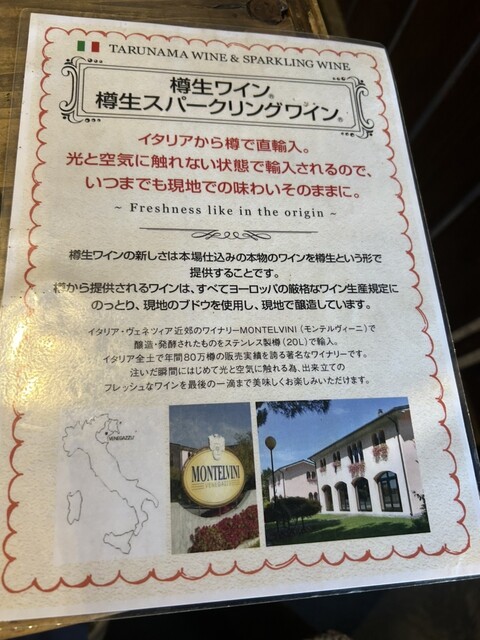 TARUNAMA WINE & SPARKLING WINE
樽生ワイン®
樽生スパークリングワイン®
イタリアから樽で直輸入。
光と空気に触れない状態で輸入されるので、
いつまでも現地での味わいそのままに。
~ Freshness like in the origin ~
樽生ワインの新しさは本場仕込みの本物のワインを樽生という形で
提供することです。
樽から提供されるワインは、すべてヨーロッパの厳格なワイン生産規定に
のっとり、現地のブドウを使用し、現地で醸造しています。
イタリア・ヴェネツィア近郊のワイナリーMONTELVINI（モンテルヴィーニ）で
醸造・発酵されたものをステンレス製樽（20L）で輸入。
イタリア全土で年間80万樽の販売実績を誇る著名なワイナリーです。
注いだ瞬間にはじめて光と空気に触れる為、出来立ての
フレッシュなワインを最後の一滴まで美味しくお楽しみいただけます。
VENEGAZZU
MONTELVINI
VENEGAZZÙ